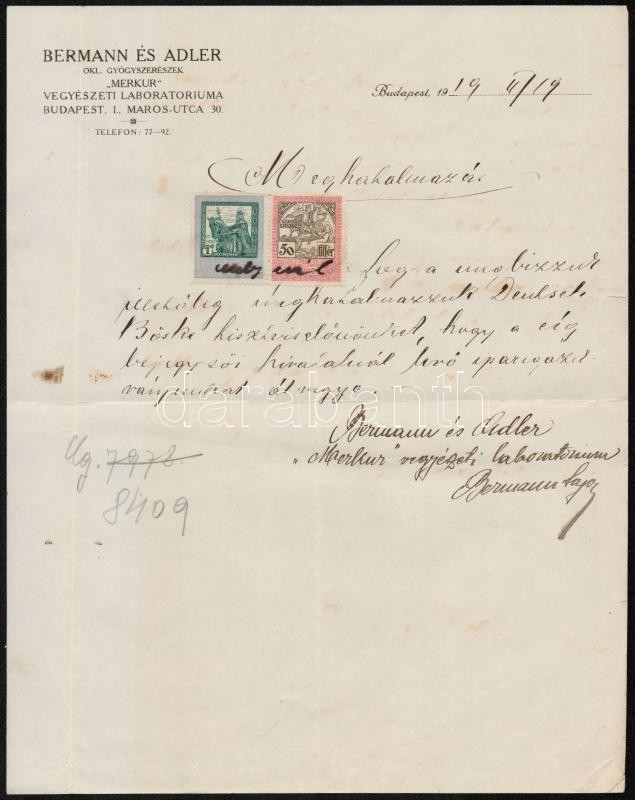 BERMANN ÉS ADLER
OKL. GYÓGYSZERÉSZEK
„MERKUR“
VEGYÉSZETI LABORATORIUMA
BUDAPEST, I., MAROS-UTCA 30.
TELEFON: 77—92.
Budapest, 1919 II/19
Meghatalmazás
1 KORONA
50 fillér
megbizzuk
illetőleg meghatalmazzuk Deutsch
Böske tisztviselőnőnket, hogy a cég
bejegyzői hivatalnál lévő iparigazol-
ványunkat átvegye.
darabanth
Bermann és Adler
„Merkur“ vegyészeti laboratorium
Bermann Lajos
Cg. 7978
8409